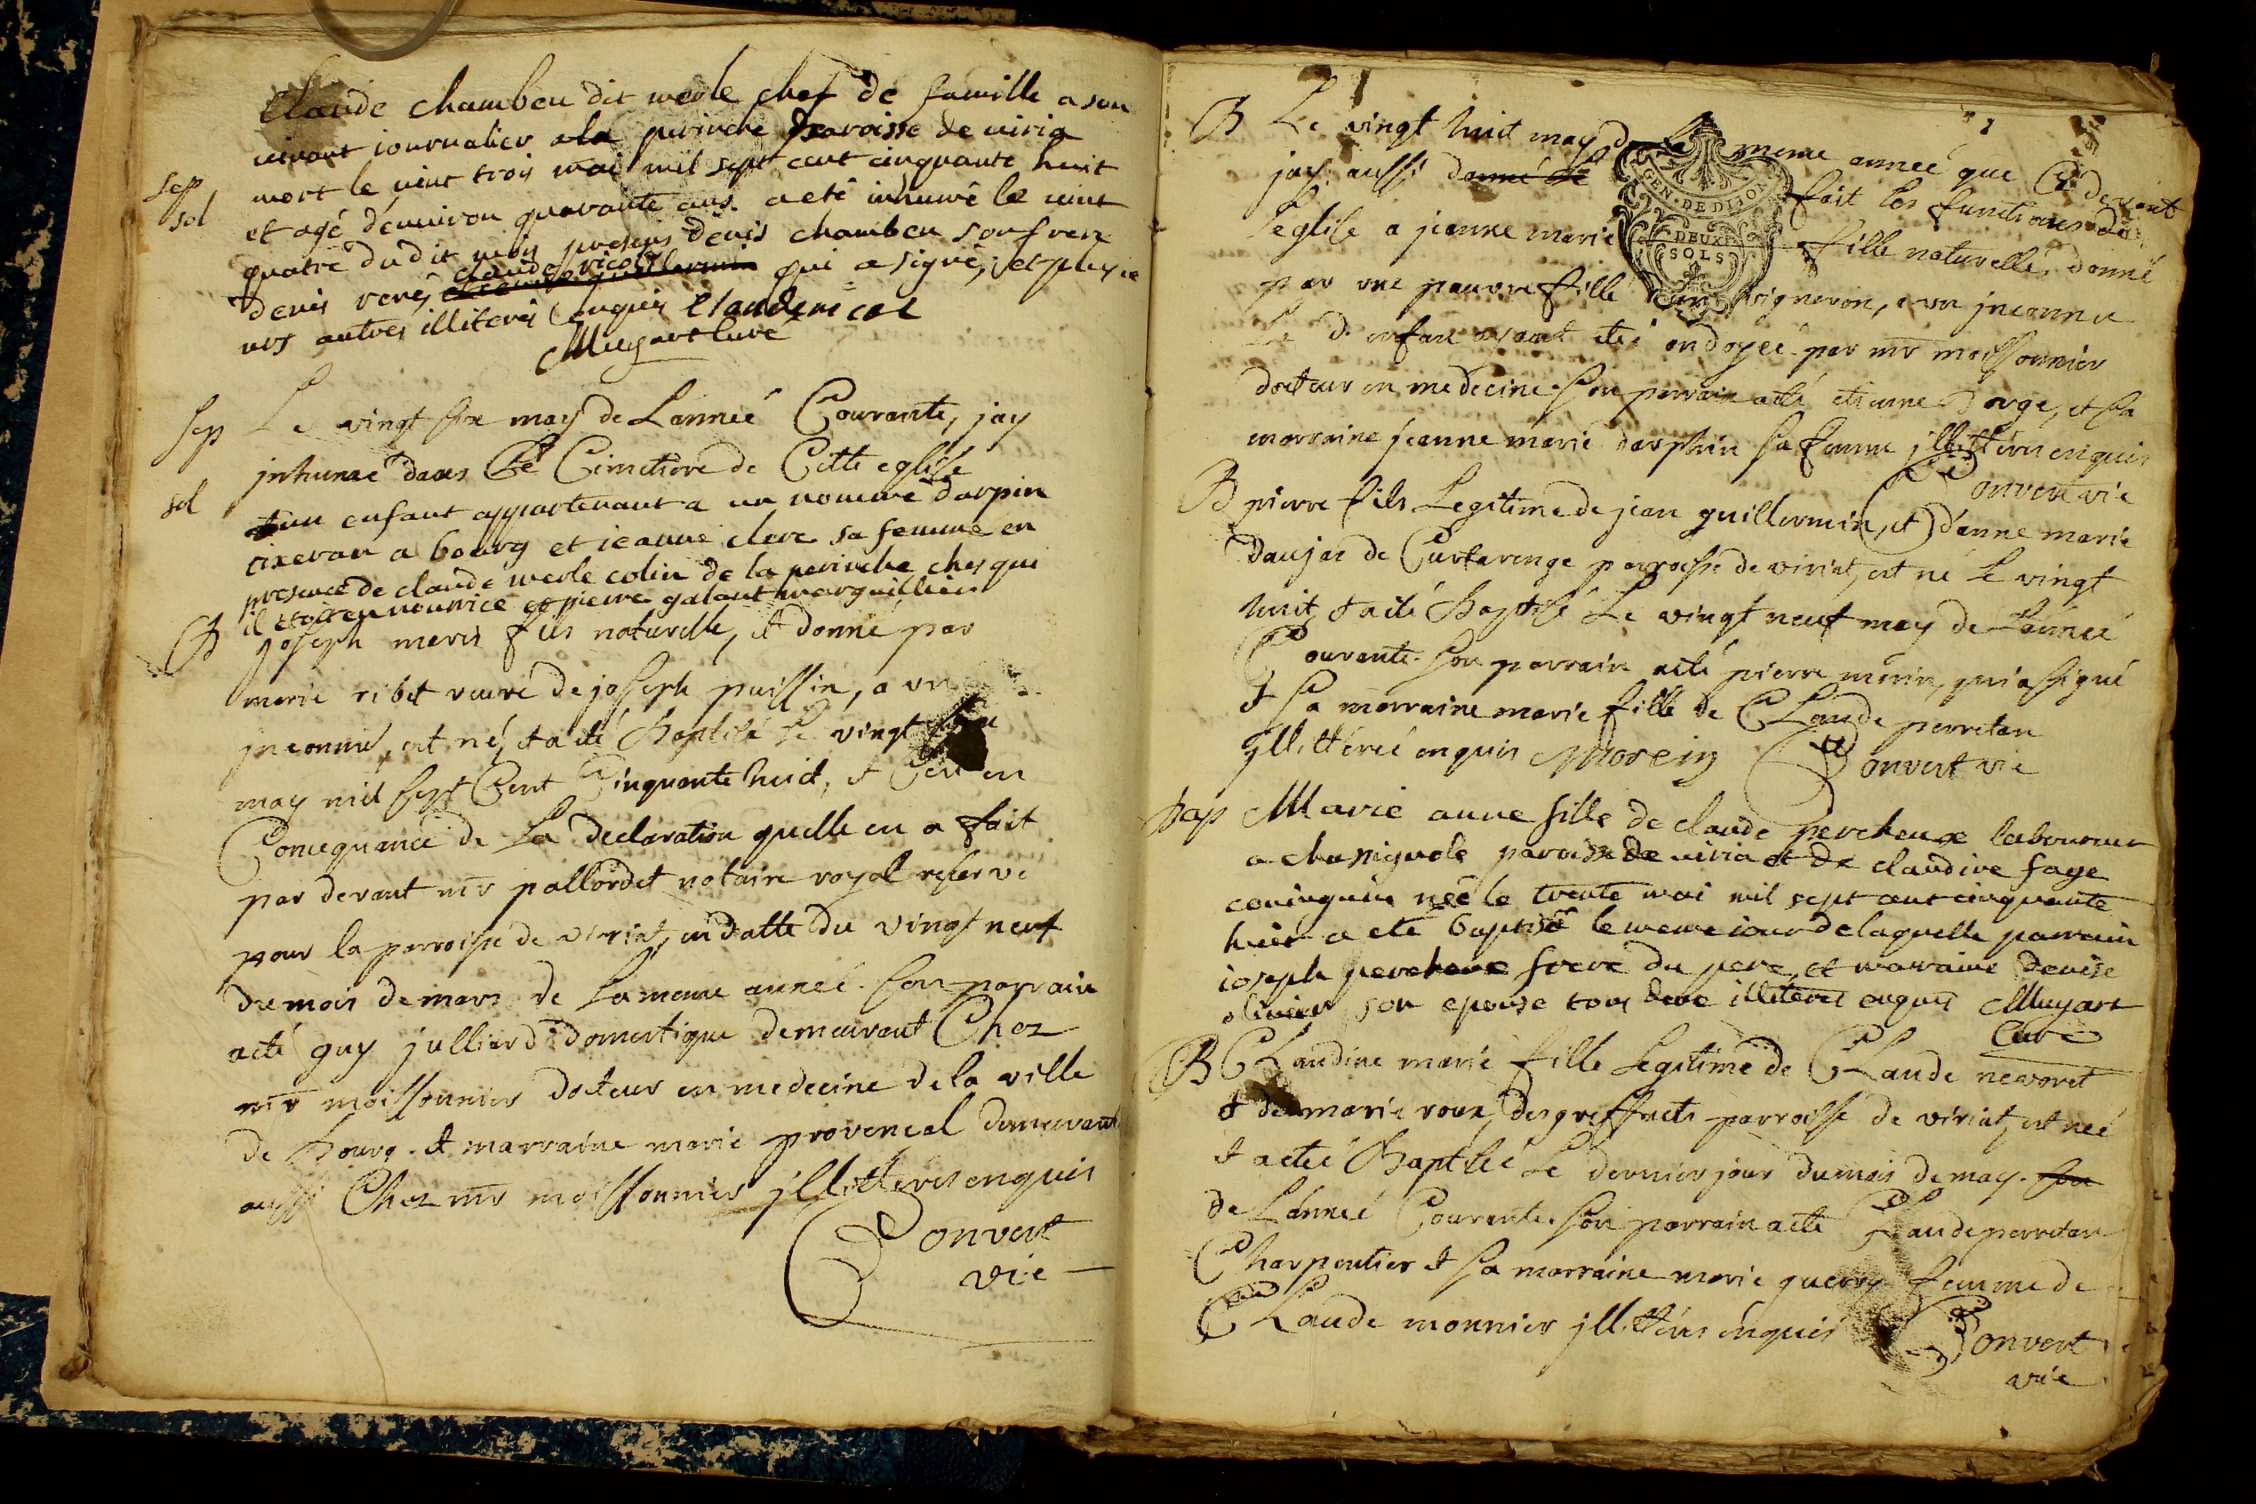 Claude chambeu dit merle chef de famille a son
vivant journalier a la perinche paroisse de viria
mort le vint trois mai mil sept cent cinquante huit
sep
sol
et agé d'environ quarante ans a eté inhumé le vint
quatre du dit mois presens denis chambeu son frere
denis claude nicol qui a signé, et plusie
urs autres illiterés enquis Claude nicol
Muyart Curé
sep Le vingt six may de Lanneé Courante, jay
jnhumé dans Le Cimetiere de Cette eglise
sol
un enfant appartenant a un nommé darpin
tixeran a bourg et jeanne clerc sa femme en
presence de claude merle colin de la perinche ches qui
il etoit en nourrice et pierre galant marguillier
B joseph marie fils naturelle, et donné par
marie ribet veuve de joseph puissin, a un
jnconnu, est né, et a eté Baptisé Le vingt
may mil sept Cent Cinquante huit, et Ce en
Consequance de La declaration quelle en a fait
par devant mr pallordet notaire royal reservé
pour la parroisse de viriat, en datte du vingt neuf
du mois de mars de La meme anneé. son parrain
a eté guy julliard domestique demeurant Chez
mr moissonnier docteur en medecine de la ville
de bourg. et marraine marie provencal demeurant
aussi Chez mr moissonnier jllitterés enquis
Convert
vic
B Le vingt huit may de la meme anneé que Cy devant
jay aussi donné fait les functiones de
Leglise a jeanne marie fille naturelle, donné
par une pauvre fille vigneron, a un jnconnu
Le d enfan ayant eté ondoyée par mr moissonnier
docteur en medecine. son parrain a eté etienne Dorge, et sa
marraine jeanne marie darphin sa femme jllitterés enquis
Convert vic
B pierre fils Legitime de jean guillermin, et d'anne marie
daujat de Curtarenge parroisse de viriat, est né Le vingt
huit, et a eté Baptisé Le vingt neuf may de Lanneé
Courante. son parrain a eté pierre morin, qui a signé
et sa marraine marie fille de Claude perretan
jllitereé enquis Morein Convert vic
bap Marie anne fille de claude percheux laboureur
a chasignole paroisse de viria et de claudine faye
coninguin neé le trente mai mil sept cent cinquante
huit a eté baptisé le meme jour de laquelle parrain
joseph percheux frere du pere, et marraine denise
olivier son epouse tous deux illiterés enquis Muyart
Curé
B Claudine marie fille Legitime de Claude nevoret
et de marie roux, des greffets parroisse de viriat, est neé
et a eteé Baptiseé Le dernier jour du mois de may. son
de Lanneé Courante. son parrain a eté Claude perretan
Charpentier et sa marraine marie guerry femme de
Claude monnier jllitterés enquis Convert
vic
GEN. DE DIJON
DEUX
SOLS